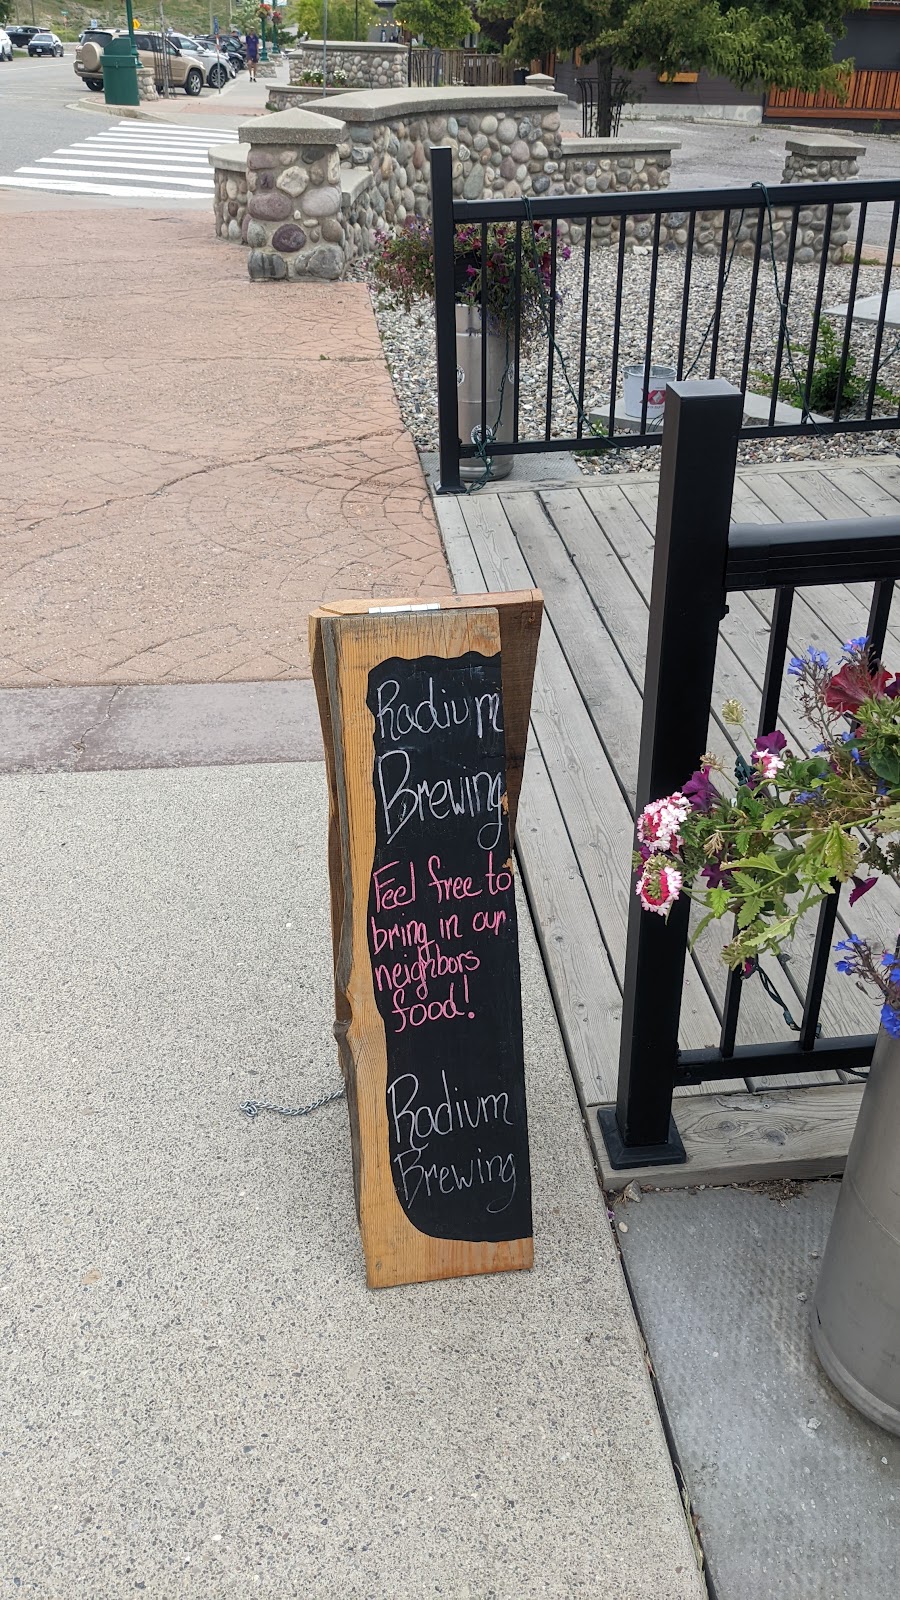 Radium
Brewing
Feel free to
bring in our
neighbors
food!
Radium
Brewing